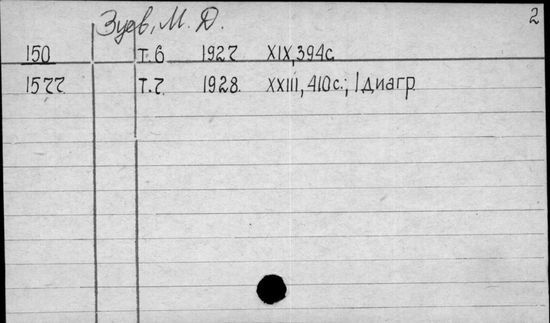 Зуев, М. Д. 2
150 Т. 6 1927 XIX, 394с.
1577 Т. 7. 1928. XXIII, 410с.; 1диагр